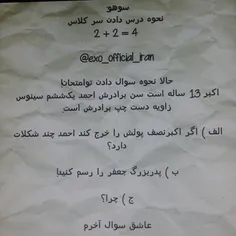 سوهو
نحوه درس دادن سر کلاس
2 + 2 = 4
@exo_official_iran
حالا نحوه سوال دادن توامتحان!
اکبر 13 ساله است سن برادرش احمد یک‌ششم سینوس
زاویه دست چپ برادرش است
الف ) اگر اکبرنصف پولش را خرج کند احمد چند شکلات
دارد؟
ب ) پدربزرگ جعفر را رسم کنید!
ج ) چرا؟
عاشق سوال آخرم